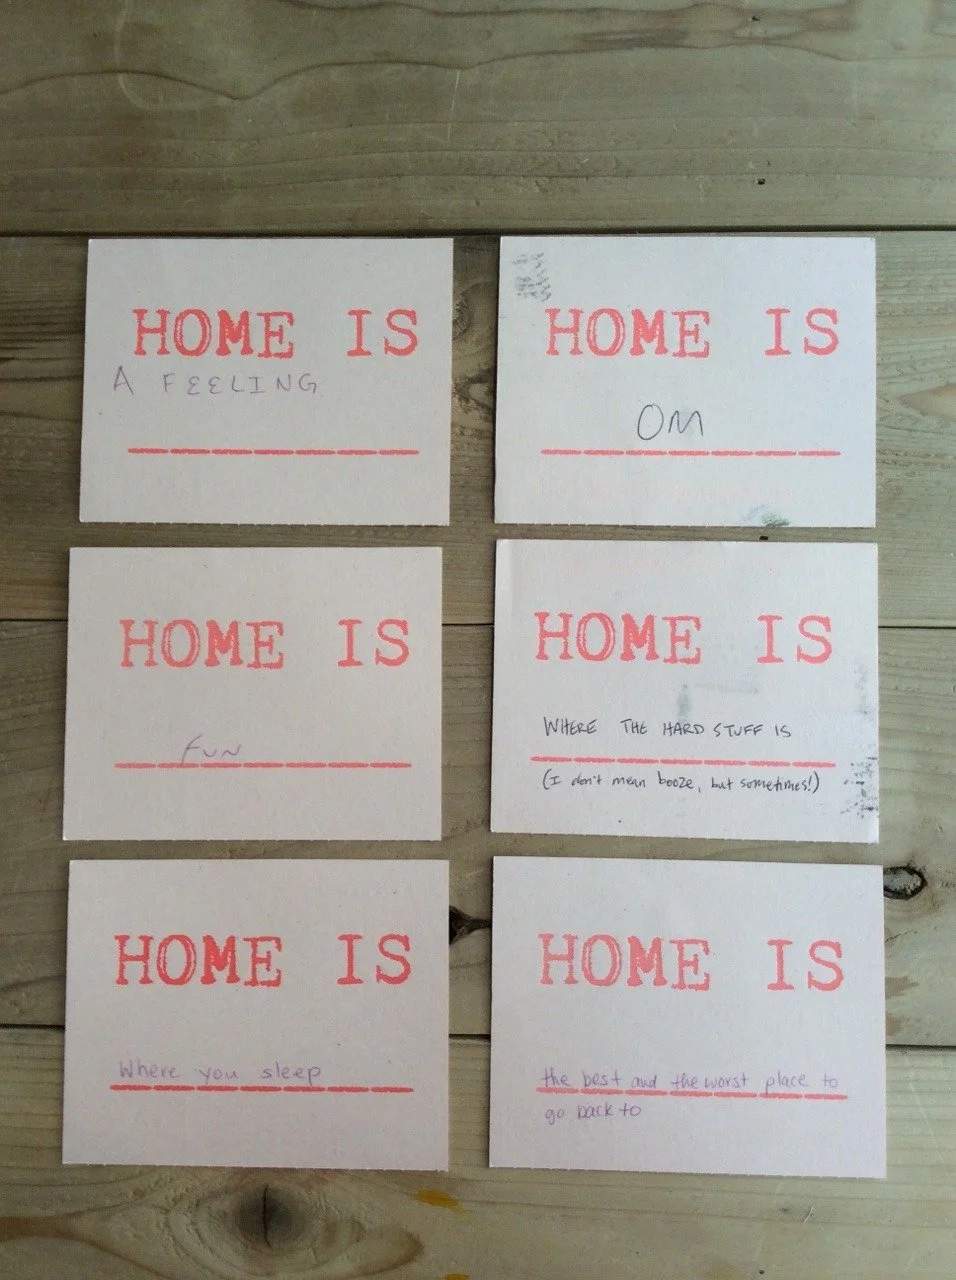 HOME IS
A FEELING
HOME IS
OM
HOME IS
FUN
HOME IS
WHERE THE HARD STUFF IS
(I don't mean booze, but sometimes!)
HOME IS
Where you sleep
HOME IS
the best and the worst place to
go back to